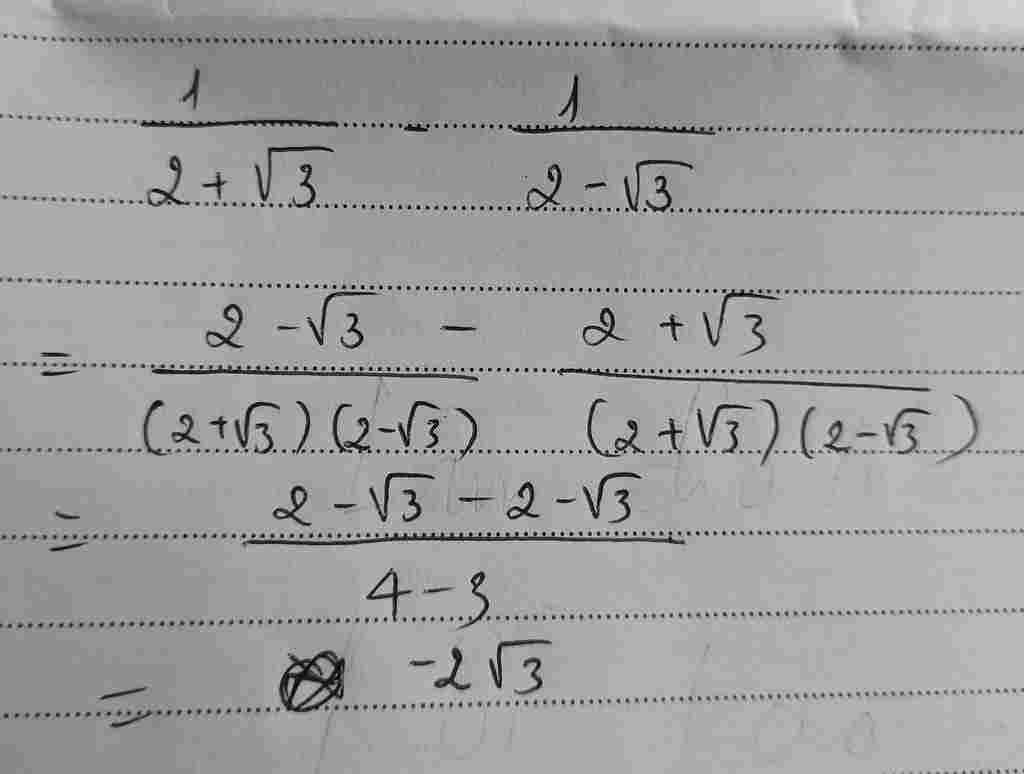 1 - 1
2 + √3 2 - √3
= 2 - √3 - 2 + √3
(2 + √3) (2 - √3) (2 + √3) (2 - √3)
= 2 - √3 - 2 - √3
4 - 3
= -2√3